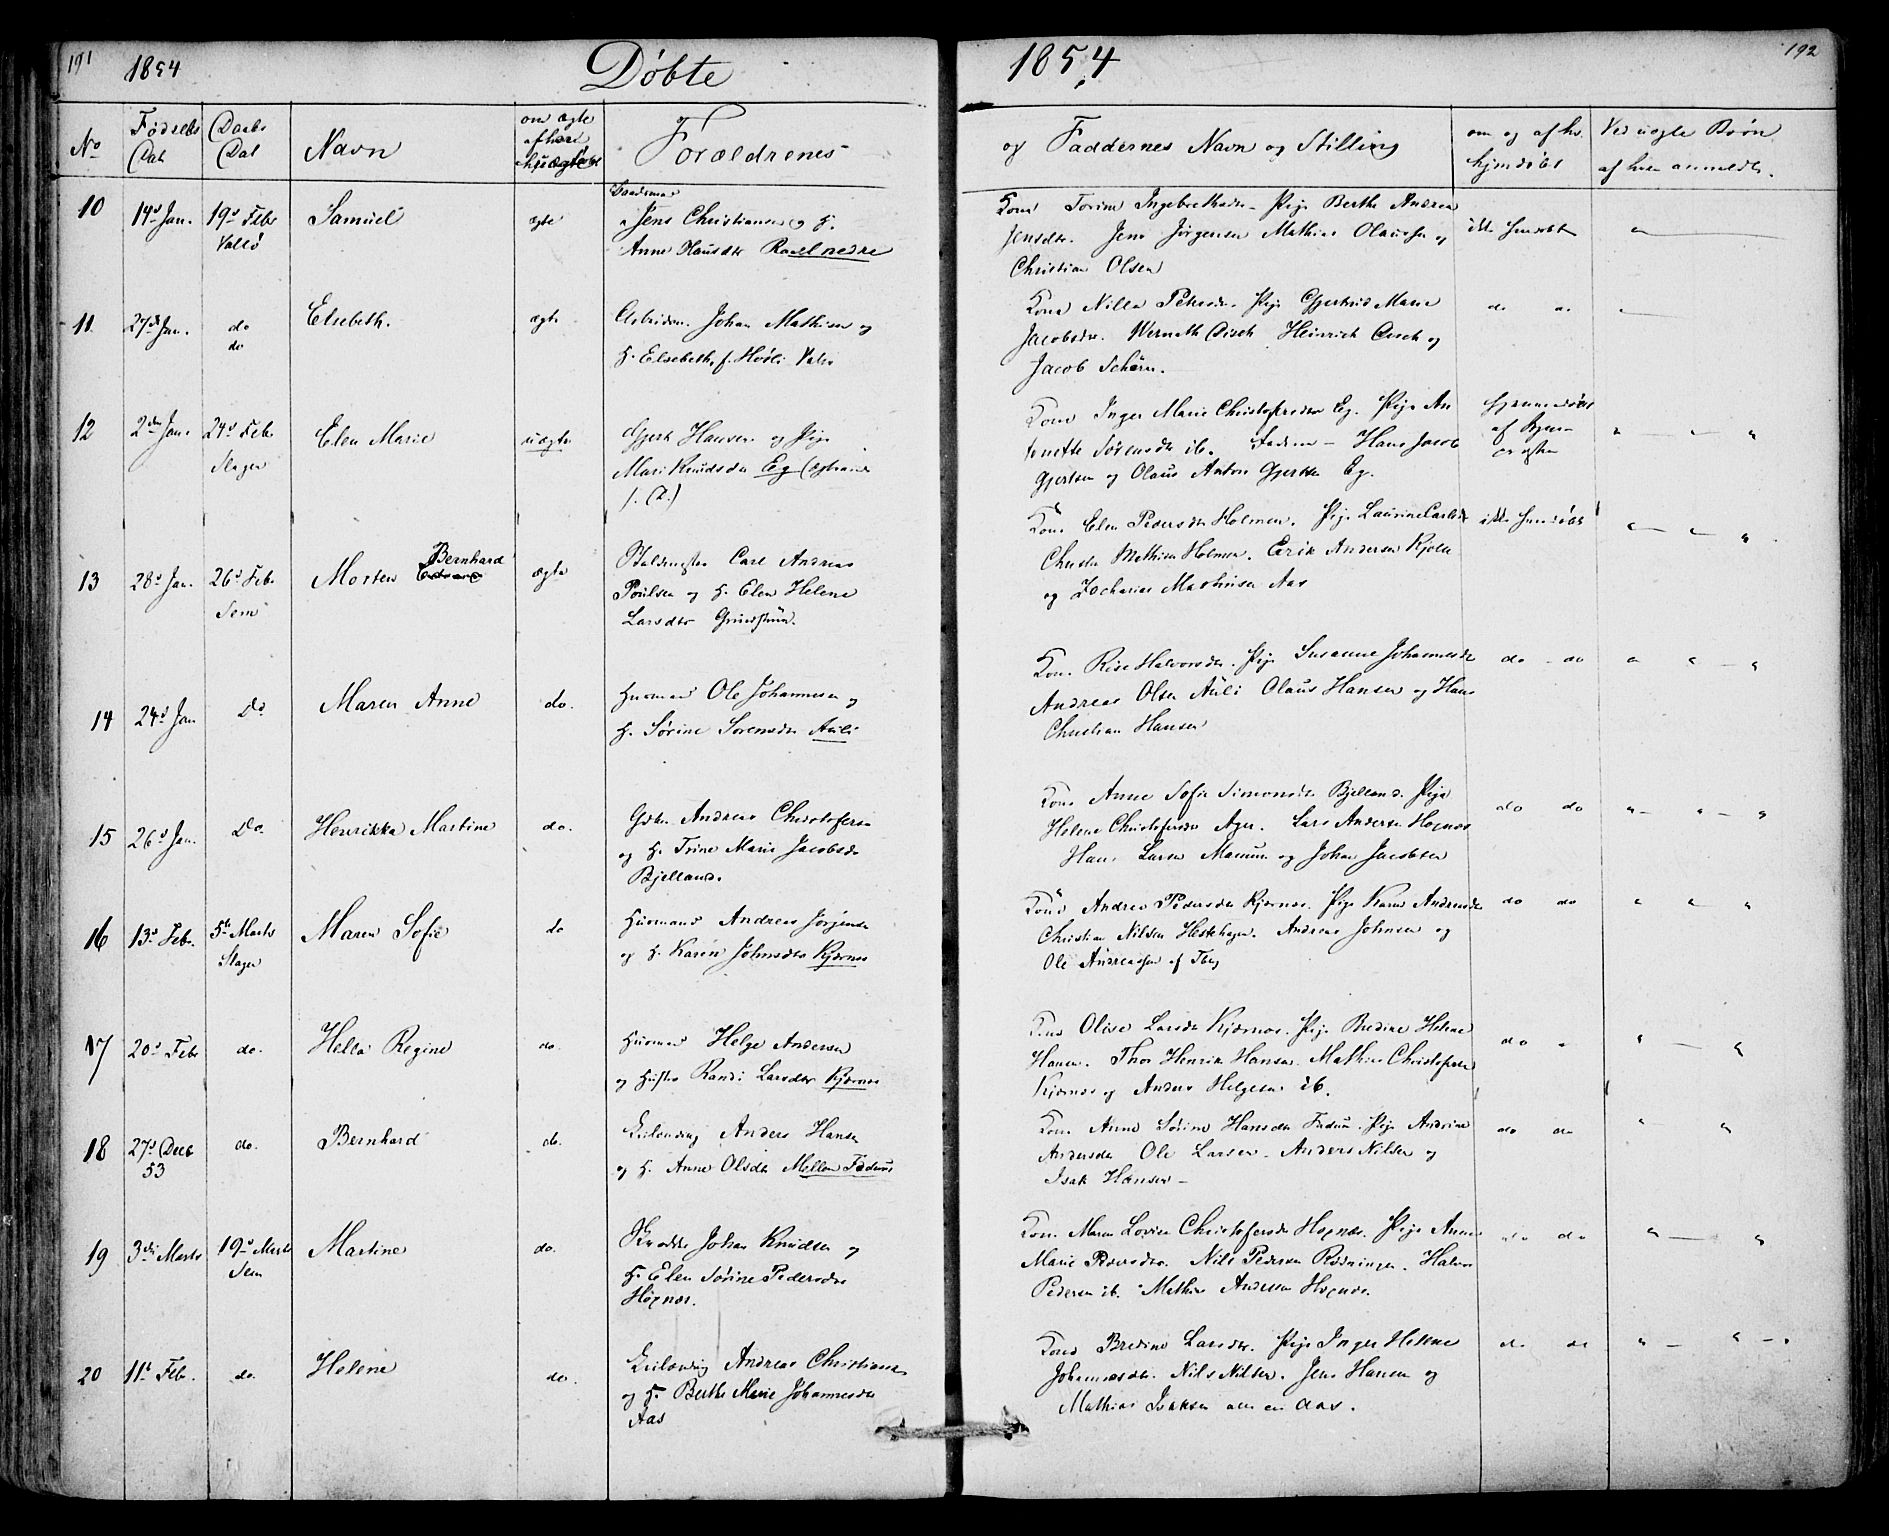 191 1854 Døbte
1854 192
No
Fødsels Dat
Daabs Dat
Navn
om ægte
Forældrenes
og Faddernes Navn og Stilling
om og af hv.
hjemdøbt
Ved uægte Børn
af hvem anmeldt.
10 14d Jan. 19d Feb Vallø Samuel ægte
Jens Christiansen og H.
Anne Hansdtr nedre
Kone Torine Ingebrethsdr. Pige Berthe Andrea
Jensdtr. Jens Jørgensen Mathias Olaussen og
Christian Olsen
ikke
11 27d Jan. do do Elsebeth. ægte
Johan Mathisen og
H. Elsebeth f.
Kone Nille Petersdr. Pige Gjertrud Marie
Jacobsdr. Heinrich og
Jacob
do do
12 2den Jan. 24d Feb Slagen Elen Marie uægte
Gjert Hansen og Pige
Mari Knudsdtr Eg
Kone Inger Marie Christofersdtr Eg. Pige An
tonette Sørensdtr ib. Hans Jacob
Gjertsen og Olaus Anton Gjertsen Eg.
hjemmedøbt
af
13 28d Jan. 26d Feb Sem Morten Bernhard ægte
Carl Andreas
Poulsen og H. Elen Helene
Larsdtr
Kone Elen Pedersdtr Holmen. Pige Laurine
Mathisen Holmen. Erik Andersen
og Zacharias Mathisen Aas
ikke hjemdøbt
14 24d Jan Do Maren Anne do.
Huusmand Ole Johannesen og
H. Sørine Sørensdtr Auli
Kone Halvorsdtr. Pige Susanne Johannesdtr
Andreas Olsen Auli Olaus Hansen og Hans
Christian Hansen
do do
15 26d Jan. Do. Henrikka Martine do.
Andreas Christofersen
og H. Trine Marie Jacobsdr
Bjelland.
Kone Anne Sofie Simonsdtr Bjelland. Pige
Helene Christofersdtr Ager. Lars Andersen Hognæs
Hans Larsen og Johan Jacobsen
do do
16 13d Feb. 5te Marts Slagen Maren Sofie do
Huusmand Andreas Jørgensen
og H. Karen Johnsdtr Kjærnæs
Kone Andrea Pedersdtr Kjærnæs. Pige Karen Andersdtr
Christian Nilsen Hestehagen. Andreas Johnsen og
Ole Andreassen af
do do
17 20d Feb do. Hella Regine do.
Huusmand Helge Andersen
og Hustro Randi Larsdtr Kjærnæs
Kone Olise Larsdtr Kjærnæs. Pige Bredine Helene
Hansen. Thor Henrik Hansen. Mathias Christofersen
Kjærnæs og Anders Helgesen ib.
do
18 27d Decb 53 do. Bernhard do.
Anders Hansen
og H. Anne Olsdtr Mellem
Kone Anne Sørine Hansdtr Pige Andrine
Andersdtr Ole Larsen. Anders Nilsen og
Isak Hansen
do do
19 3die Marts 19d Marts Sem Martine do.
Johan Knudsen og
H. Elen Sørine Pedersdtr
Høgnæs.
Kone Maren Lovise Christofersdtr Høgnæs. Pige Anne
Marie Pedersdtr. Nils Pedersen Halvor
Pedersen ib. Mathias Andersen Høgnæs.
do do
20 11te Feb. do. Helene do.
Andreas Christiansen
og H. Berthe Marie Johannesdtr
Aas
Kone Bredine Larsdtr. Pige Inger Helene
Johannesdtr. Nils Nilsen. Jens Hansen og
Mathias Isaksen alle en Aas.
do do